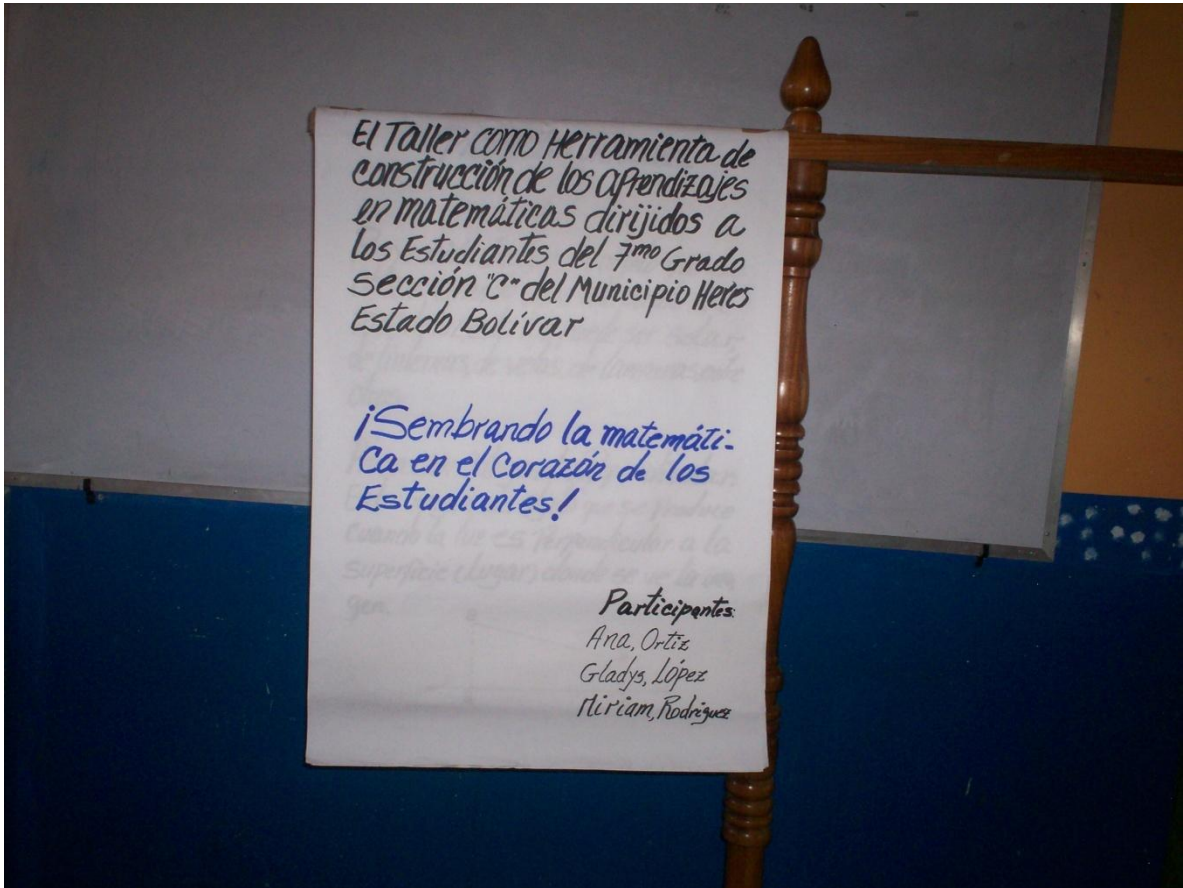 El Taller como Herramienta de
construcción de los aprendizajes
en matemáticas dirijidos a
los Estudiantes del 7mo Grado
sección "C" del Municipio Heres
Estado Bolívar
¡Sembrando la matemáti-
ca en el Corazón de los
Estudiantes!
Participantes:
Ana, Ortiz
Gladys, López
Miriam, Rodriguez